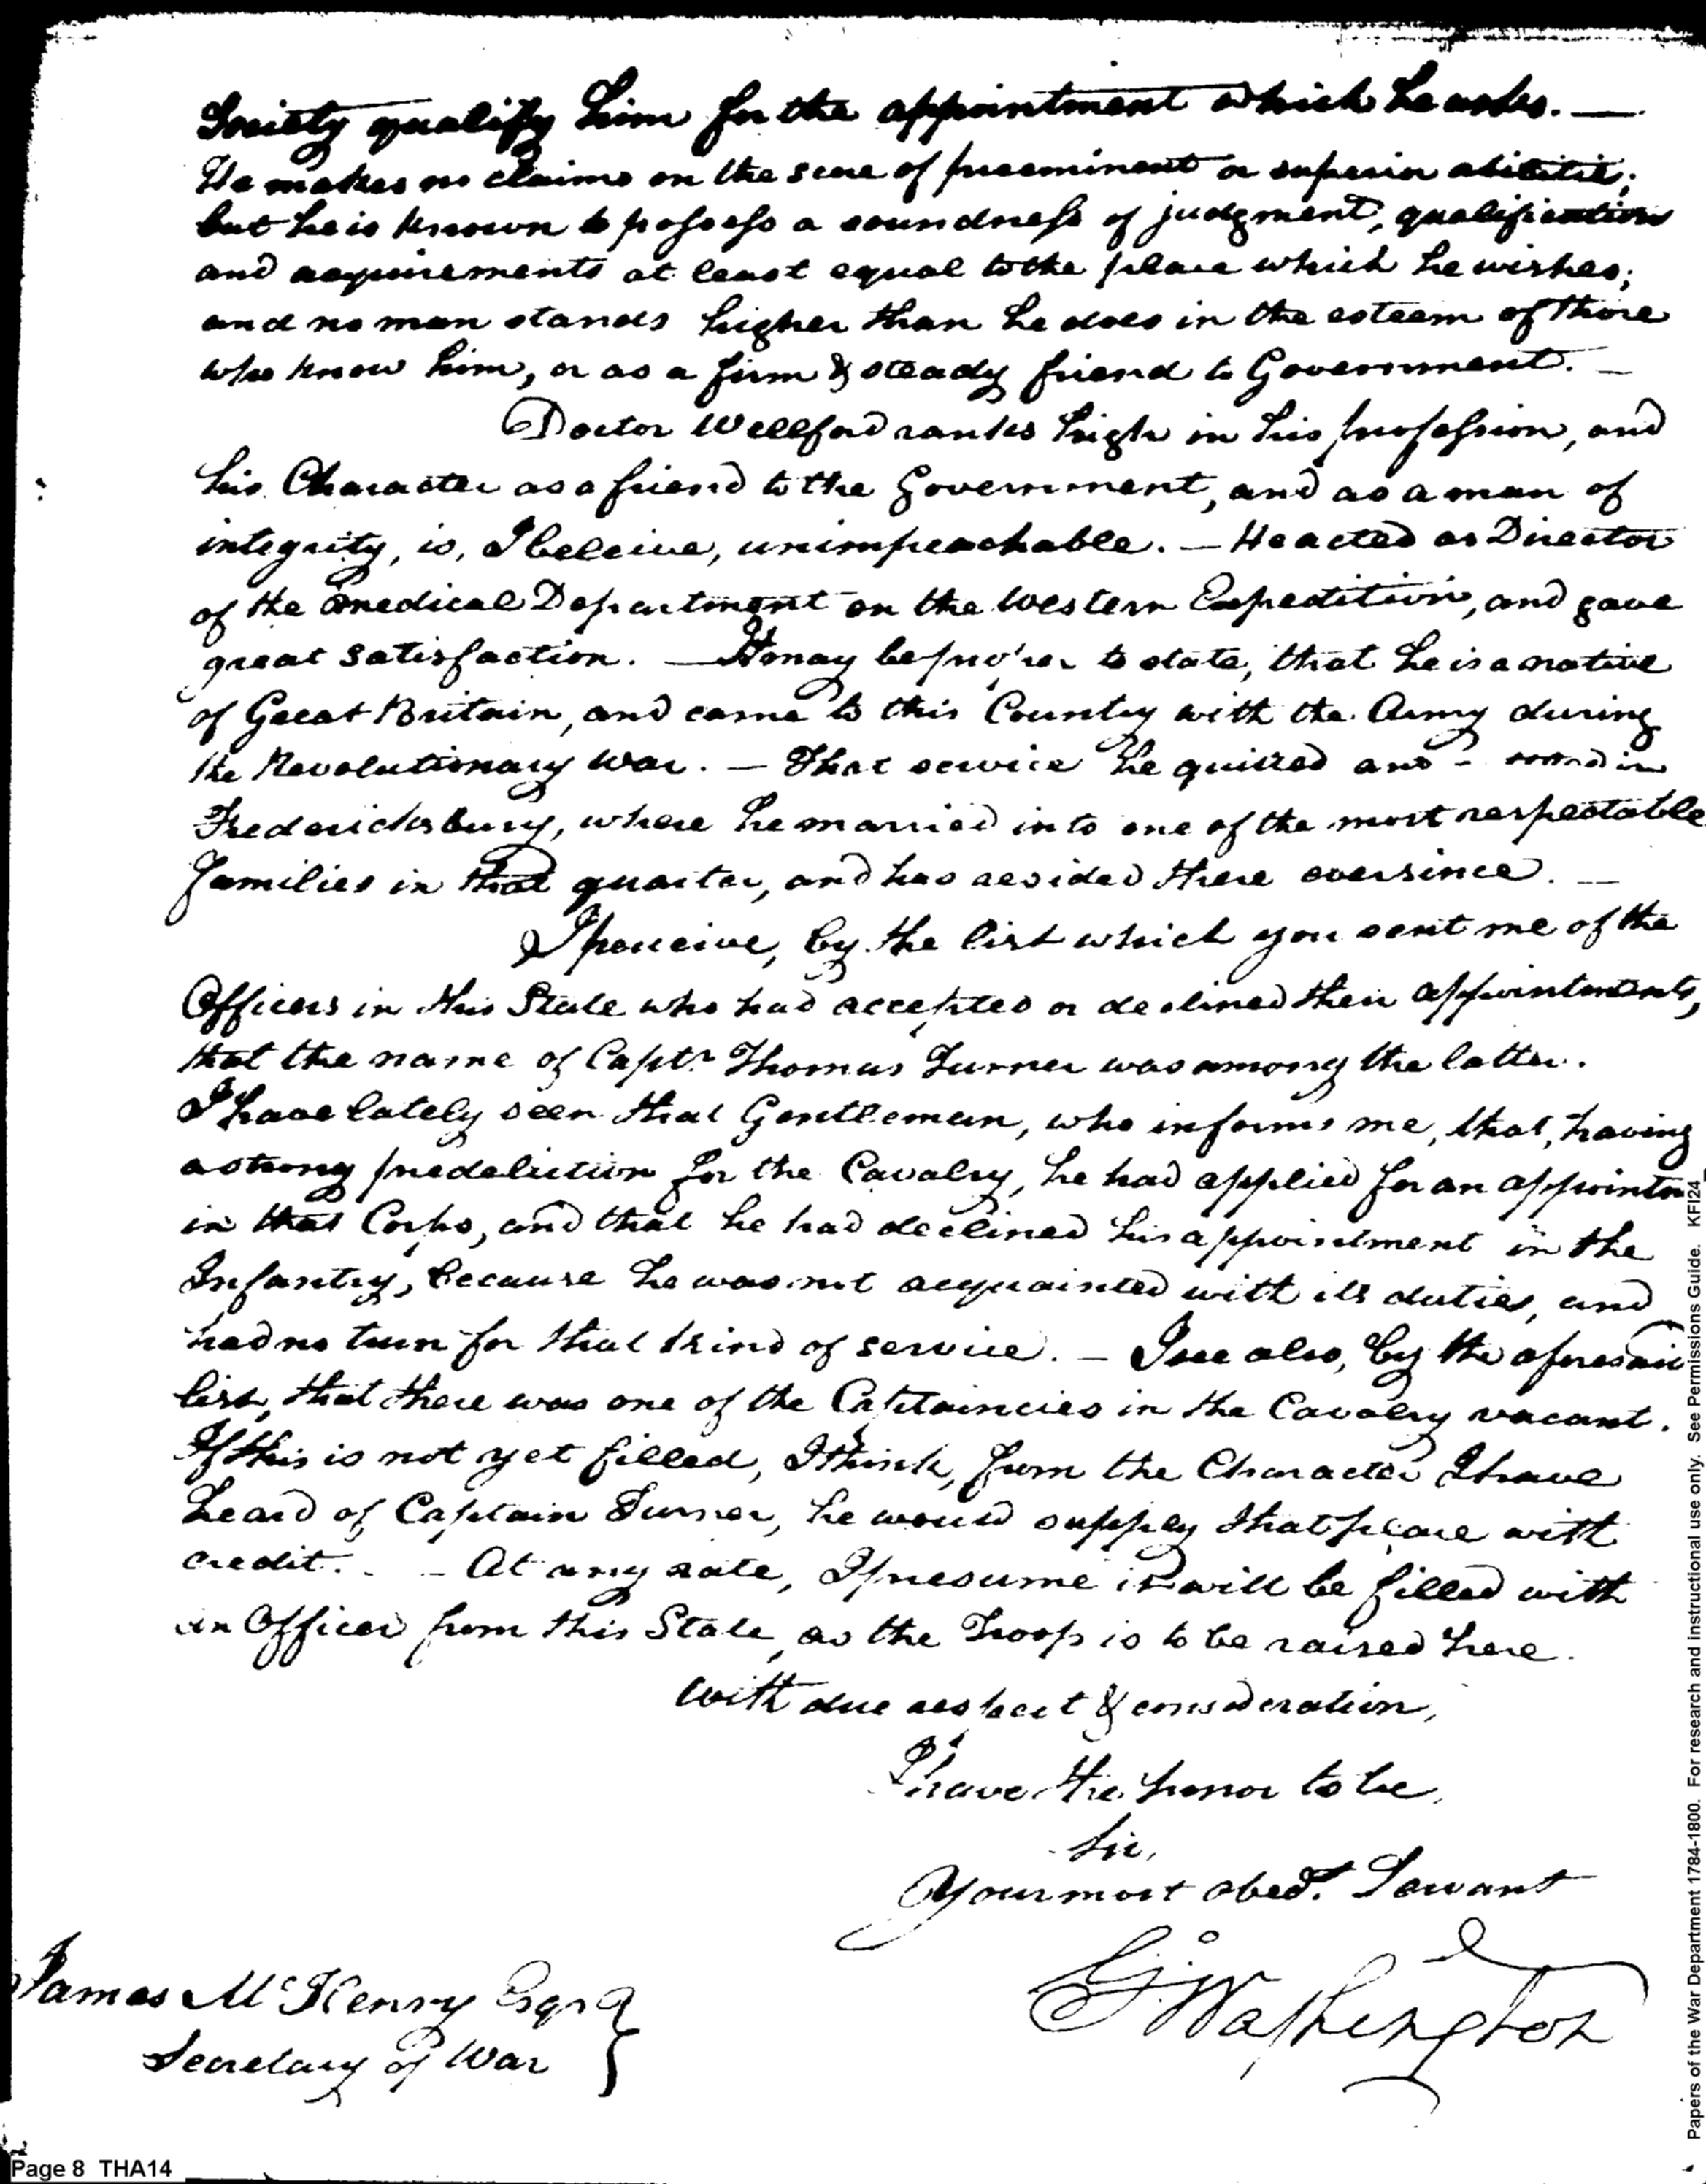 Society qualify him for the appointment which he asks. —
He makes no claims on the score of preeminent or superior abilities;
but he is known to possess a soundness of judgment, qualification
and acquirements at least equal to the place which he wishes;
and no man stands higher than he does in the esteem of those
who know him, or as a firm & steady friend to Government. —
Doctor Wellford ranks high in his profession, and
his Character as a friend to the Government, and as a man of
integrity, is, I beleive, unimpeachable. — He acted as Director
of the medical Department on the Western Expedition, and gave
great satisfaction. — It may be proper to state, that he is a native
of Great Britain, and came to this Country with the Army during
the Revolutionary War. — That service he quitted and in
Fredericksburg, where he married into one of the most respectable
families in that quarter, and has resided there ever since. —
I perceive, by the list which you sent me of the
Officers in this State who had accepted or declined their appointments,
that the name of Captn. Thomas Turner was among the latter.
I have lately seen that Gentleman, who informs me, that, having
a strong predeliction for the Cavalry, he had applied for an appointm
in that Corps, and that he had declined his appointment in the
Infantry, because he was not acquainted with its duties, and
had no turn for that kind of service. — I see also, by the aforesaid
list, that there was one of the Captaincies in the Cavalry vacant.
If this is not yet filled, I think, from the Character I have
heard of Captain Turner, he would supply that place with
credit. — At any rate, I presume it will be filled with
an Officer from this State, as the Troop is to be raised here.
With due respect & consideration,
I have the honor to be,
Sir,
Your most obedt. Servant
Go: Washington
James McHenry Esqr
Secretary of War }
Page 8 THA14
Papers of the War Department 1784-1800. For research and instructional use only. See Permissions Guide. KFI24